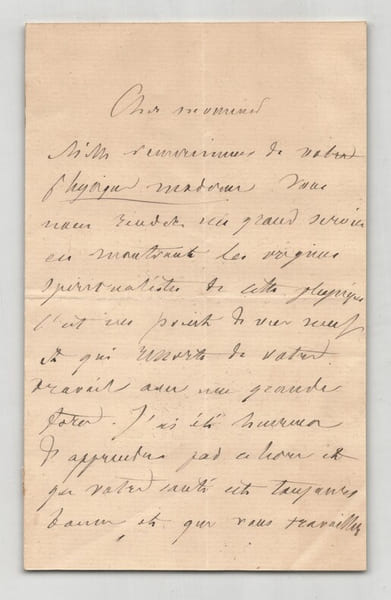 Cher monsieur
Mille remerciements de votre
physique moderne. Vous
nous rendez un grand service
en montrant les origines
spiritualistes de cette physique
C'est un point de vue neuf
et qui ressort de votre
travail avec une grande
force. J'ai été heureux
d'apprendre par
que votre santé est toujours
bonne et que vous travaillez